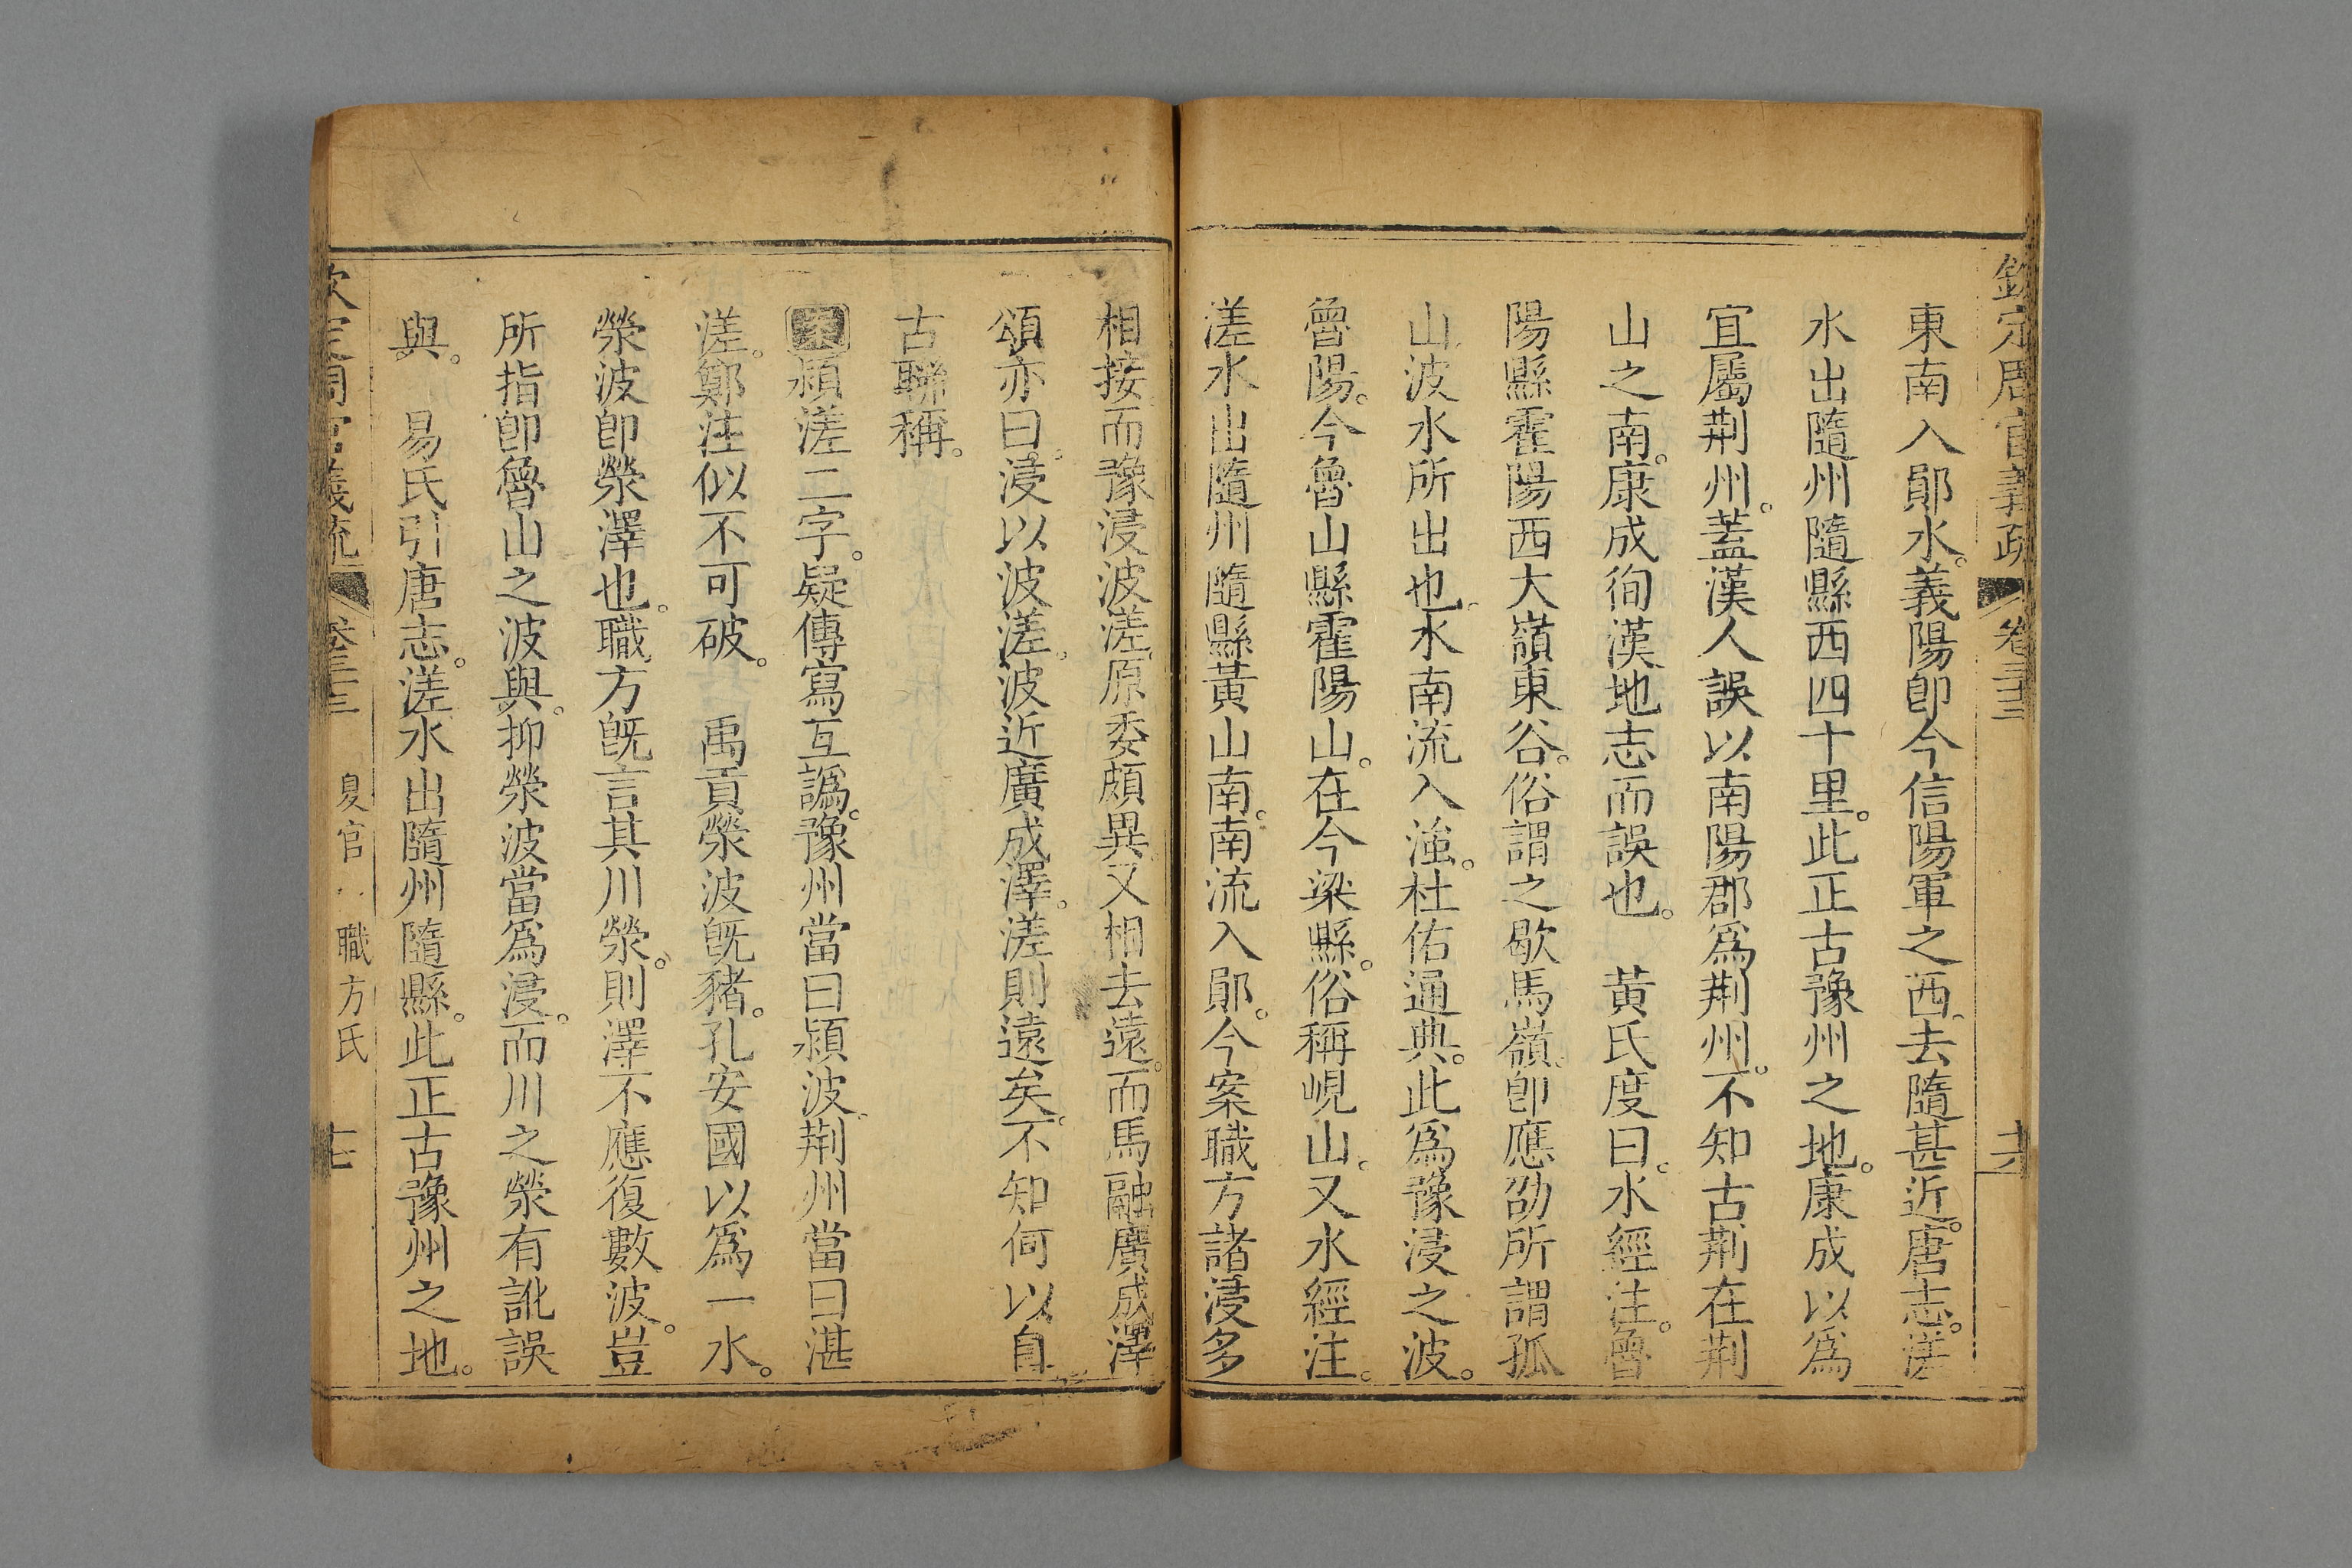 欽定周官義疏 卷三十三
東南入鄖水。義陽卽今信陽軍之西。去隨甚近。唐志。溠
水出隨州隨縣西四十里。此正古豫州之地。康成以爲
宜屬荆州。葢漢人誤以南陽郡爲荆州。不知古荆在荆
山之南。康成徇漢地志而誤也。　黃氏度曰。水經注。魯
陽縣霍陽西大嶺東谷。俗謂之歇馬嶺。卽應劭所謂孤
山。波水所出也。水南流入滍。杜佑通典。此爲豫浸之波。
魯陽。今魯山縣霍陽山。在今梁縣。俗稱峴山。又水經注。
溠水出隨州隨縣黃山南。南流入鄖。今案職方諸浸多
相接而豫浸波溠。原委頗異。又相去遠。而馬融廣成澤
頌亦曰。浸以波溠。波近廣成澤。溠則遠矣。不知何以自
古聯稱。
案潁溠二字。疑傳寫互譌。豫州當曰潁波。荆州當曰湛
溠。鄭注似不可破。　禹貢滎波旣豬。孔安國以爲一水。
滎波卽滎澤也。職方旣言其川滎。則澤不應復數波。豈
所指卽魯山之波與。抑滎波當爲浸。而川之滎有訛誤
與。　易氏引唐志。溠水出隨州隨縣。此正古豫州之地。
欽定周官義疏 卷三十三 夏官 職方氏 七